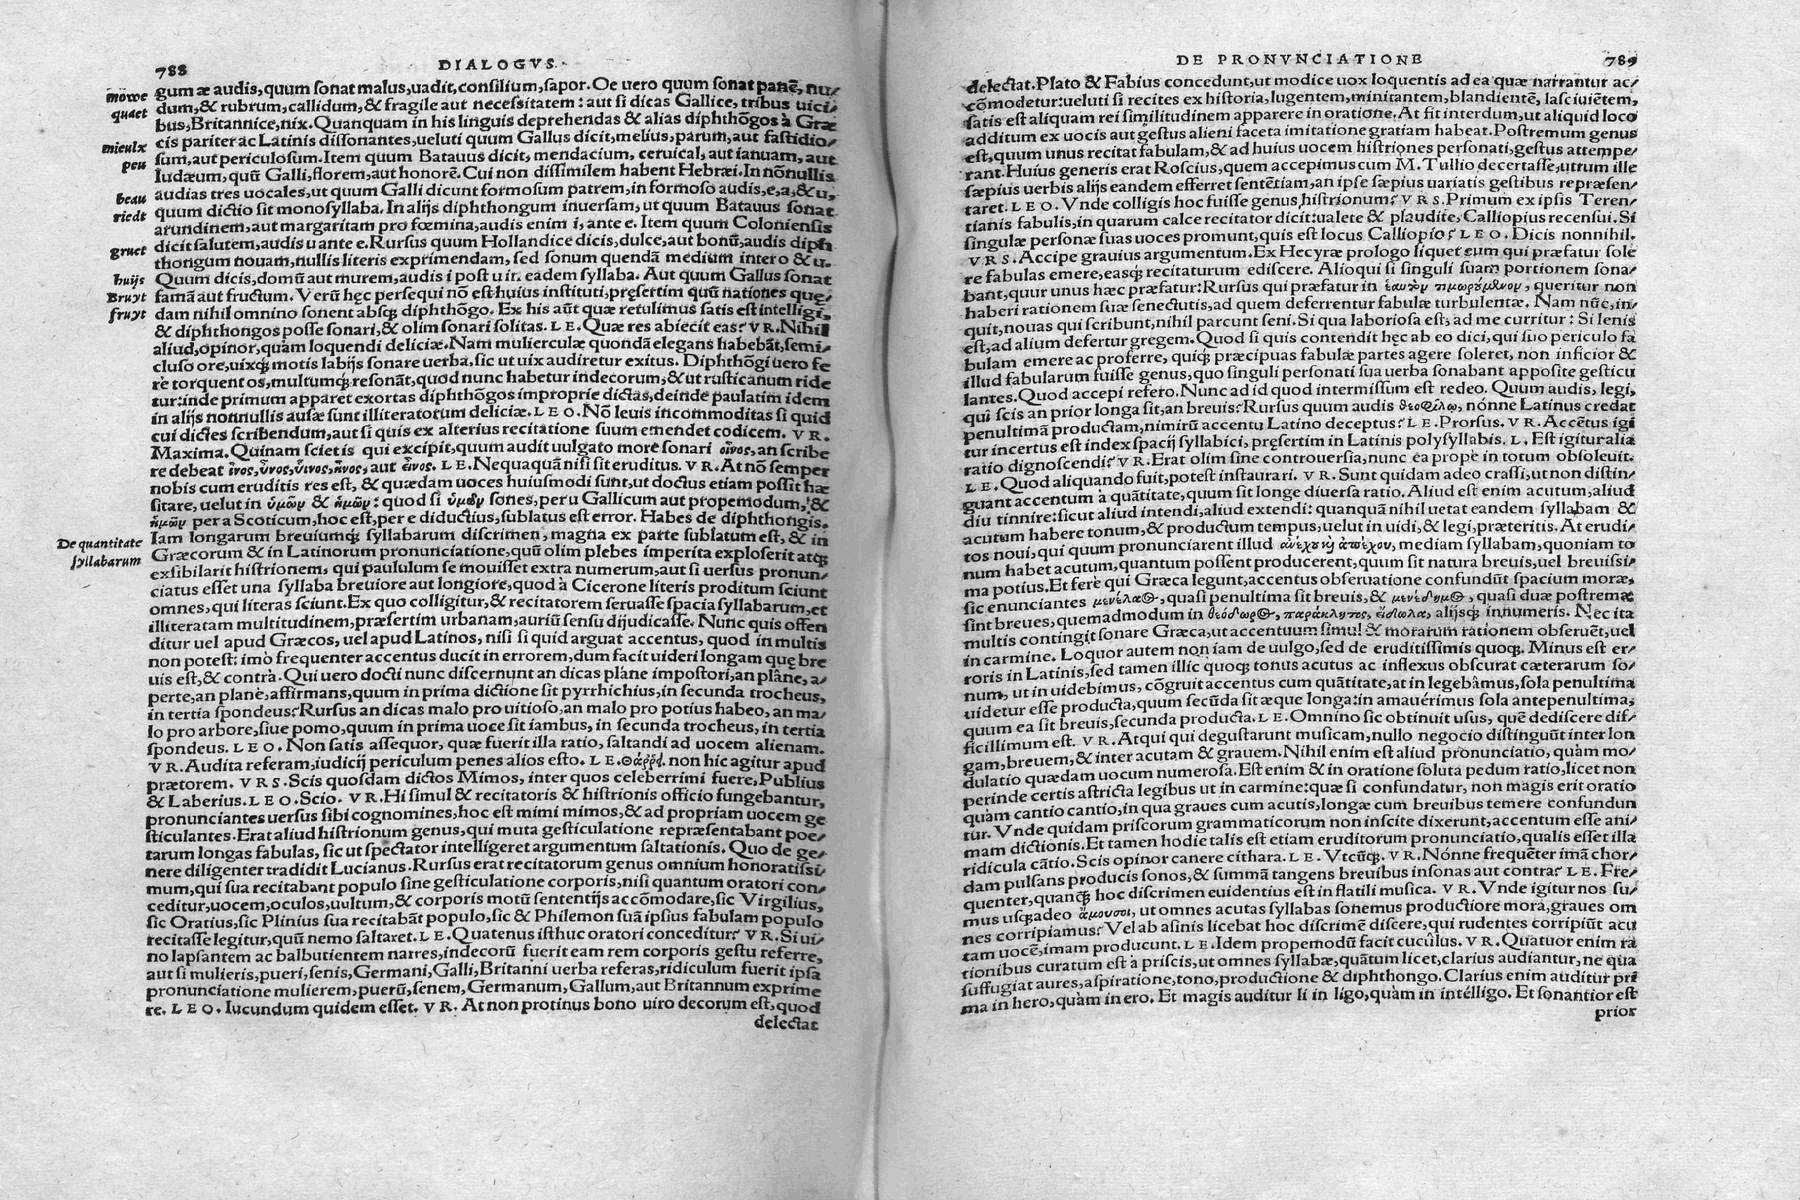 788 DIALOGVS.
mowe
quaet
mieulx
peu
beau
riedt
gruet
huijs
Bruyt
fruyt
De quantitate
syllabarum
gum æ audis, quum sonat malus, uadit, consilium, sapor. Oe uero quum sonat panē, nu/
dum, & rubrum, callidum, & fragile aut necessitatem: aut si dicas Gallice, tribus uici/
bus, Britannice, nix. Quanquam in his linguis deprehendas & alias diphthōgos à Græ
cis pariter ac Latinis dissonantes, ueluti quum Gallus dicit, melius, parum, aut fastidio/
sum, aut periculosum. Item quum Batauus dicit, mendacium, ceruical, aut ianuam, aut
Iudæum, quū Galli, florem, aut honorē. Cui non dissimilem habent Hebræi. In nōnullis
audias tres uocales, ut quum Galli dicunt formosum patrem, in formoso audis, e, a, & u,
quum dictio sit monosyllaba. In alijs diphthongum inuersam, ut quum Batauus sonat
arundinem, aut margaritam pro fœmina, audis enim i, ante e. Item quum Coloniensis
dicit salutem, audis u ante e. Rursus quum Hollandice dicis, dulce, aut bonū, audis diph
thongum nouam, nullis literis exprimendam, sed sonum quendā medium inter o & u.
Quum dicis, domū aut murem, audis i post u in eadem syllaba. Aut quum Gallus sonat
famā aut fructum. Verū hęc persequi nō est huius instituti, pręsertim quū nationes quę/
dam nihil omnino sonent absq; diphthōgo. Ex his aūt quæ retulimus satis est intelligi,
& diphthongos posse sonari, & olim sonari solitas. LE. Quæ res abiecit eas? VR. Nihil
aliud, opinor, quàm loquendi deliciæ. Nam mulierculæ quondā elegans habebāt, semi/
cluso ore, uixq; motis labijs sonare uerba, sic ut uix audiretur exitus. Diphthōgi uero fe
rè torquent os, multumq; resonāt, quod nunc habetur indecorum, & ut rusticanum ride
tur: inde primum apparet exortas diphthōgos improprie dictas, deinde paulatim idem
in alijs nonnullis ausæ sunt illiteratorum deliciæ. LEO. Nō leuis incommoditas si quid
cui dictes scribendum, aut si quis ex alterius recitatione suum emendet codicem. VR.
Maxima. Quinam sciet is qui excipit, quum audit uulgato more sonari οἶνος, an scribe
re debeat ἶνος, ὗνος, ὕινος, ἦνος, aut εἶνος. LE. Nequaquā nisi sit eruditus. VR. At nō semper
nobis cum eruditis res est, & quædam uoces huiusmodi sunt, ut doctus etiam possit hæ
sitare, uelut in ὑμῶν & ἡμῶν: quod si ὑμῶν sones, per u Gallicum aut propemodum, &
ἡμῶν per a Scoticum, hoc est, per e diductius, sublatus est error. Habes de diphthongis.
Iam longarum breuiumq; syllabarum discrimen, magna ex parte sublatum est, & in
Græcorum & in Latinorum pronunciatione, quū olim plebes imperita exploserit atq;
exsibilarit histrionem, qui paululum se mouisset extra numerum, aut si uersus pronun/
ciatus esset una syllaba breuiore aut longiore, quod à Cicerone literis proditum sciunt
omnes, qui literas sciunt. Ex quo colligitur, & recitatorem seruasse spacia syllabarum, et
illiteratam multitudinem, præsertim urbanam, auriū sensu dijudicasse. Nunc quis offen
ditur uel apud Græcos, uel apud Latinos, nisi si quid arguat accentus, quod in multis
non potest: imò frequenter accentus ducit in errorem, dum facit uideri longam quę bre
uis est, & contrà. Qui uero docti nunc discernunt an dicas plane impostori, an plâne, a/
perte, an planè, affirmans, quum in prima dictione sit pyrrhichius, in secunda trocheus,
in tertia spondeus? Rursus an dicas malo pro uitioso, an malo pro potius habeo, an ma/
lo pro arbore, siue pomo, quum in prima uoce sit iambus, in secunda trocheus, in tertia
spondeus. LEO. Non satis assequor, quæ fuerit illa ratio, saltandi ad uocem alienam.
VR. Audita referam, iudicij periculum penes alios esto. LE. Θάρρει. non hic agitur apud
prætorem. VRS. Scis quosdam dictos Mimos, inter quos celeberrimi fuere, Publius
& Laberius. LEO. Scio. VR. Hi simul & recitatoris & histrionis officio fungebantur,
pronunciantes uersus sibi cognomines, hoc est mimi mimos, & ad propriam uocem ge
sticulantes. Erat aliud histrionum genus, qui muta gesticulatione repræsentabant poe/
tarum longas fabulas, sic ut spectator intelligeret argumentum saltationis. Quo de ge/
nere diligenter tradidit Lucianus. Rursus erat recitatorum genus omnium honoratissi
mum, qui sua recitabant populo sine gesticulatione corporis, nisi quantum oratori con/
ceditur, uocem, oculos, uultum, & corporis motū sententijs accōmodare, sic Virgilius,
sic Oratius, sic Plinius sua recitabāt populo, sic & Philemon suā ipsius fabulam populo
recitasse legitur, quū nemo saltaret. LE. Quatenus isthuc oratori conceditur? VR. Si ui/
no lapsantem ac balbutientem narres, indecorū fuerit eam rem corporis gestu referre,
aut si mulieris, pueri, senis, Germani, Galli, Britanni uerba referas, ridiculum fuerit ipsa
pronunciatione mulierem, puerū, senem, Germanum, Gallum, aut Britannum exprime
re. LEO. Iucundum quidem esset. VR. At non protinus bono uiro decorum est, quod
delectat
DE PRONVNCIATIONE 789
delectat. Plato & Fabius concedunt, ut modice uox loquentis ad ea quæ narrantur ac/
cōmodetur: ueluti si recites ex historia, lugentem, minitantem, blandientē, lasciuiētem,
satis est aliquam rei similitudinem apparere in oratione. At fit interdum, ut aliquid loco
additum ex uocis aut gestus alieni faceta imitatione gratiam habeat. Postremum genus
est, quum unus recitat fabulam, & ad huius uocem histriones personati, gestus attempe/
rant. Huius generis erat Roscius, quem accepimus cum M. Tullio decertasse, utrum ille
sæpius uerbis alijs eandem efferret sentētiam, an ipse sæpius uariatis gestibus repræsen/
taret. LEO. Vnde colligis hoc fuisse genus histrionum? VRS. Primum ex ipsis Teren/
tianis fabulis, in quarum calce recitator dicit: ualete & plaudite, Calliopius recensui. Si
singulæ personæ suas uoces promunt, quis est locus Calliopio? LEO. Dicis nonnihil.
VRS. Accipe grauius argumentum. Ex Hecyræ prologo liquet eum qui præfatur sole
re fabulas emere, easq; recitaturum ediscere. Alioqui si singuli suam portionem sona/
bant, quur unus hæc præfatur? Rursus qui præfatur in ἑαυτὸν τιμωρούμενον, queritur non
haberi rationem suæ senectutis, ad quem deferrentur fabulæ turbulentæ. Nam nūc, in/
quit, nouas qui scribunt, nihil parcunt seni. Si qua laboriosa est, ad me curritur: Si lenis
est, ad alium defertur gregem. Quod si quis contendit hęc ab eo dici, qui suo periculo fa
bulam emere ac proferre, quiq; præcipuas fabulæ partes agere soleret, non inficior &
illud fabularum fuisse genus, quo singuli personati sua uerba sonabant apposite gesticu
lantes. Quod accepi refero. Nunc ad id quod intermissum est redeo. Quum audis, legi,
qui scis an prior longa sit, an breuis? Rursus quum audis θεοφίλῳ, nónne Latinus credat
penultimā productam, nimirū accentu Latino deceptus? LE. Prorsus. VR. Accētus igi
tur incertus est index spacij syllabici, pręsertim in Latinis polysyllabis. L. Est igitur alia
ratio dignoscendi? VR. Erat olim sine controuersia, nunc ea propè in totum obsoleuit.
LE. Quod aliquando fuit, potest instaurari. VR. Sunt quidam adeo crassi, ut non distin/
guant accentum à quātitate, quum sit longe diuersa ratio. Aliud est enim acutum, aliud
diu tinnire: sicut aliud intendi, aliud extendi: quanquā nihil uetat eandem syllabam &
acutum habere tonum, & productum tempus, uelut in uidi, & legi, præteritis. At erudi/
tos noui, qui quum pronunciarent illud ἀνέχου καὶ ἀπέχου, mediam syllabam, quoniam to
num habet acutum, quantum possent producerent, quum sit natura breuis, uel breuissi/
ma potius. Et ferè qui Græca legunt, accentus obseruatione confundūt spacium moræ,
sic enunciantes μενέλαος, quasi penultima sit breuis, & μενέδημος, quasi duæ postremæ
sint breues, quemadmodum in θεόδωρος, παράκλητος, εἴδωλα, alijsq; innumeris. Nec ita
multis contingit sonare Græca, ut accentuum simul & morarum rationem obseruēt, uel
in carmine. Loquor autem non iam de uulgo, sed de eruditissimis quoq;. Minus est er/
roris in Latinis, sed tamen illic quoq; tonus acutus ac inflexus obscurat cæterarum so/
num, ut in uidebimus, cōgruit accentus cum quātitate, at in legebâmus, sola penultima
uidetur esse producta, quum secūda sit æque longa: in amauérimus sola antepenultima,
quum ea sit breuis, secunda producta. LE. Omnino sic obtinuit usus, quē dediscere dif/
ficillimum est. VR. Atqui qui degustarunt musicam, nullo negocio distinguūt inter lon
gam, breuem, & inter acutam & grauem. Nihil enim est aliud pronunciatio, quàm mo/
dulatio quædam uocum numerosa. Est enim & in oratione soluta pedum ratio, licet non
perinde certis astricta legibus ut in carmine: quæ si confundatur, non magis erit oratio
quàm cantio cantio, in qua graues cum acutis, longæ cum breuibus temere confundun
tur. Vnde quidam priscorum grammaticorum non inscite dixerunt, accentum esse ani/
mam dictionis. Et tamen hodie talis est etiam eruditorum pronunciatio, qualis esset illa
ridicula cātio. Scis opinor canere cithara. LE. Vtcūq;. VR. Nónne frequēter imā chor/
dam pulsans producis sonos, & summā tangens breuibus insonas aut contra? LE. Fre/
quenter, quanq; hoc discrimen euidentius est in flatili musica. VR. Vnde igitur nos su/
mus usq; adeo ἄμουσοι, ut omnes acutas syllabas sonemus productiore morà, graues om
nes corripiamus? Vel ab asinis licebat hoc discrimē discere, qui rudentes corripiūt acu
tam uocē, imam producunt. LE. Idem propemodū facit cucûlus. VR. Quatuor enim ra
tionibus curatum est à priscis, ut omnes syllabæ, quātum licet, clarius audiantur, ne qua
suffugiat aures, aspiratione, tono, productione & diphthongo. Clarius enim auditur pri
ma in hero, quàm in ero. Et magis auditur li in ligo, quàm in intélligo. Et sonantior est
prior